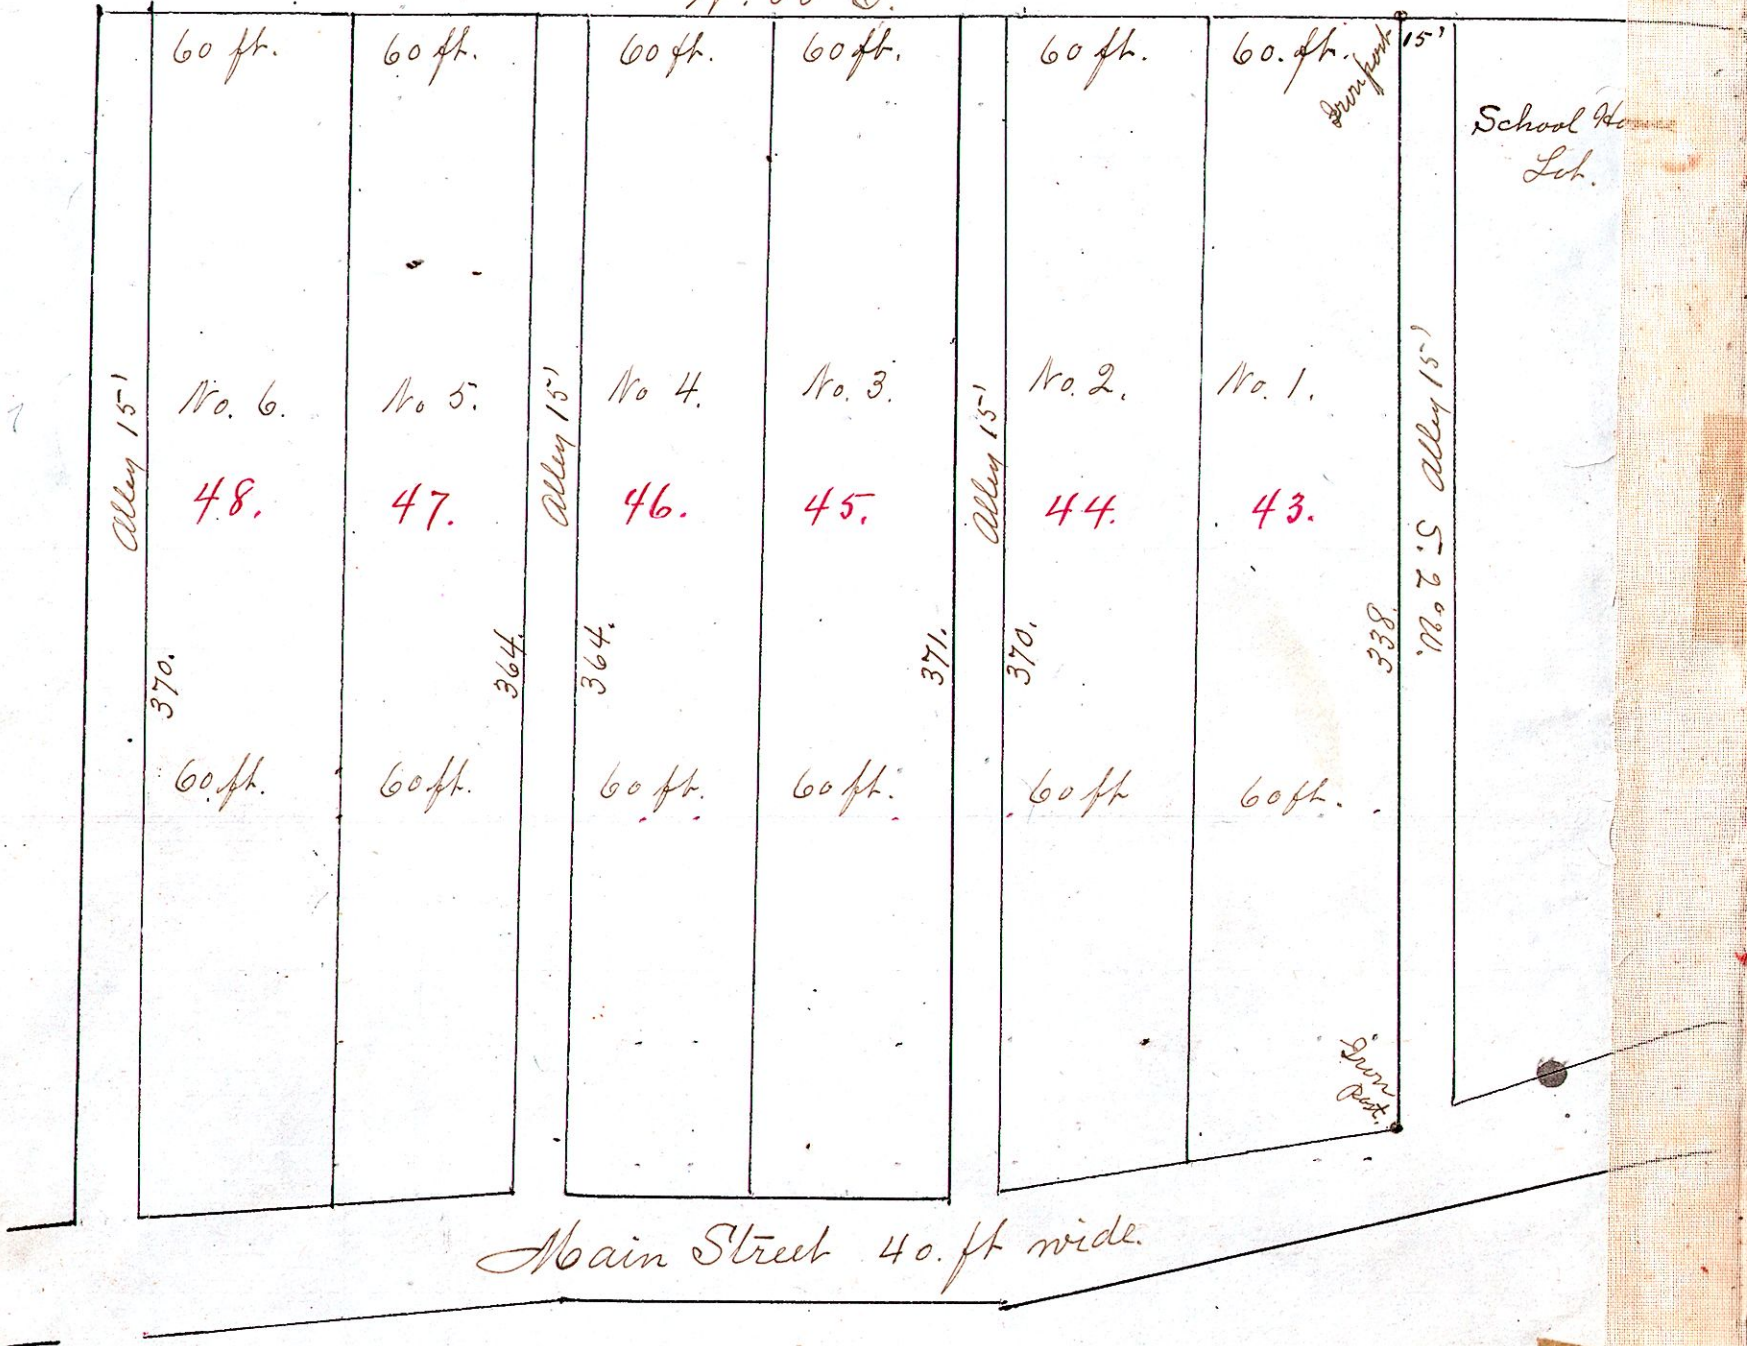 60 ft. 60 ft. 60 ft. 60 ft. 60 ft. 60. ft. 15'
Iron post
School
Lot.
Alley 15' No. 6. No 5. Alley 15' No 4. No. 3. Alley 15' No. 2. No. 1. Alley 15'
48. 47. 46. 45. 44. 43.
370. 364. 364. 371. 370. 338.
60 ft. 60 ft. 60 ft. 60 ft. 60 ft 60 ft.
Iron
Post.
Main Street 40. ft wide.